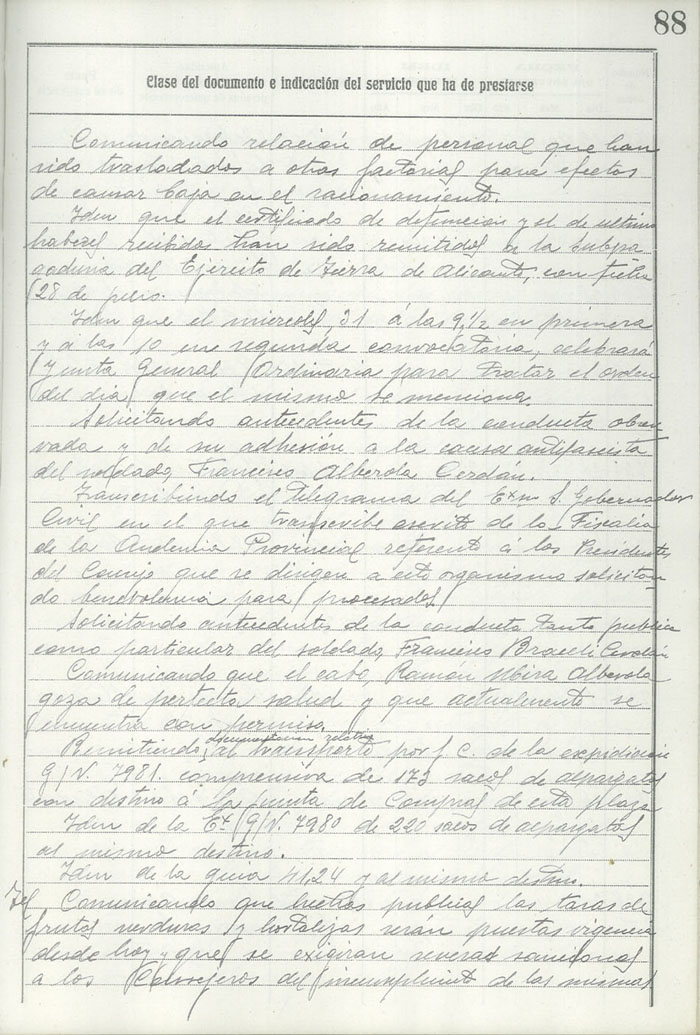 88
Clase del documento e indicación del servicio que ha de prestarse
Comunicando relación de personal que han
sido trasladados a otras factorias para efectos
de causar baja en el racionamiento.
Idem que el certificado de defuncion y el de ultimos
haberes recibida han sido remitidos a la Subpa
gaduria del Ejercito de Tierra de Alicante, con fecha
28 de
Idem que el miercoles, 31 á las 9 1/2 en primera
y á las 10 en segunda convocatoria, celebrará
Junta General Ordinaria para tratar el orden
del dia que el mismo se menciona.
Solicitando antecedentes de la conducta obser
vada y de su adhesión a la causa antifascista
del soldado, Francisco Alberola Cerdán.
Transcribiendo el telegrama del Exmo S. Gobernador
Civil en el que transcribe escrito de la Fiscalia
de la Audencia Provincial referente á los Presidentes
del Consejo que se dirigen a este organismo solicitan
do benevolencia para procesados.
Solicitando antecedentes de la conducta tanto publica
como particular del soldado, Francisco Braceli Cerdán
Comunicando que el cabo, Ramón Mira Alberola
goza de perfecta salud y que actualmente se
encuentra con permiso.
Remitiendo documentacion relativa al transporte por f. c. de la expedicion
G/V. 7981. comprensiva de 173 sacos de alpargatas
con destino á la Junta de Compras de esta plaza
Idem de la Ex. G/V. 7980 de 220 sacos de alpargatas
al mismo destino.
Idem de la guia 41,24 y al mismo destino.
Comunicando que hechas publicas las tasas de
frutas verduras y hortalizas serán puestas vigencia
desde hoy y que se exigiran severas sanciones
a los Consejeros del incumplimiento de las mismas.